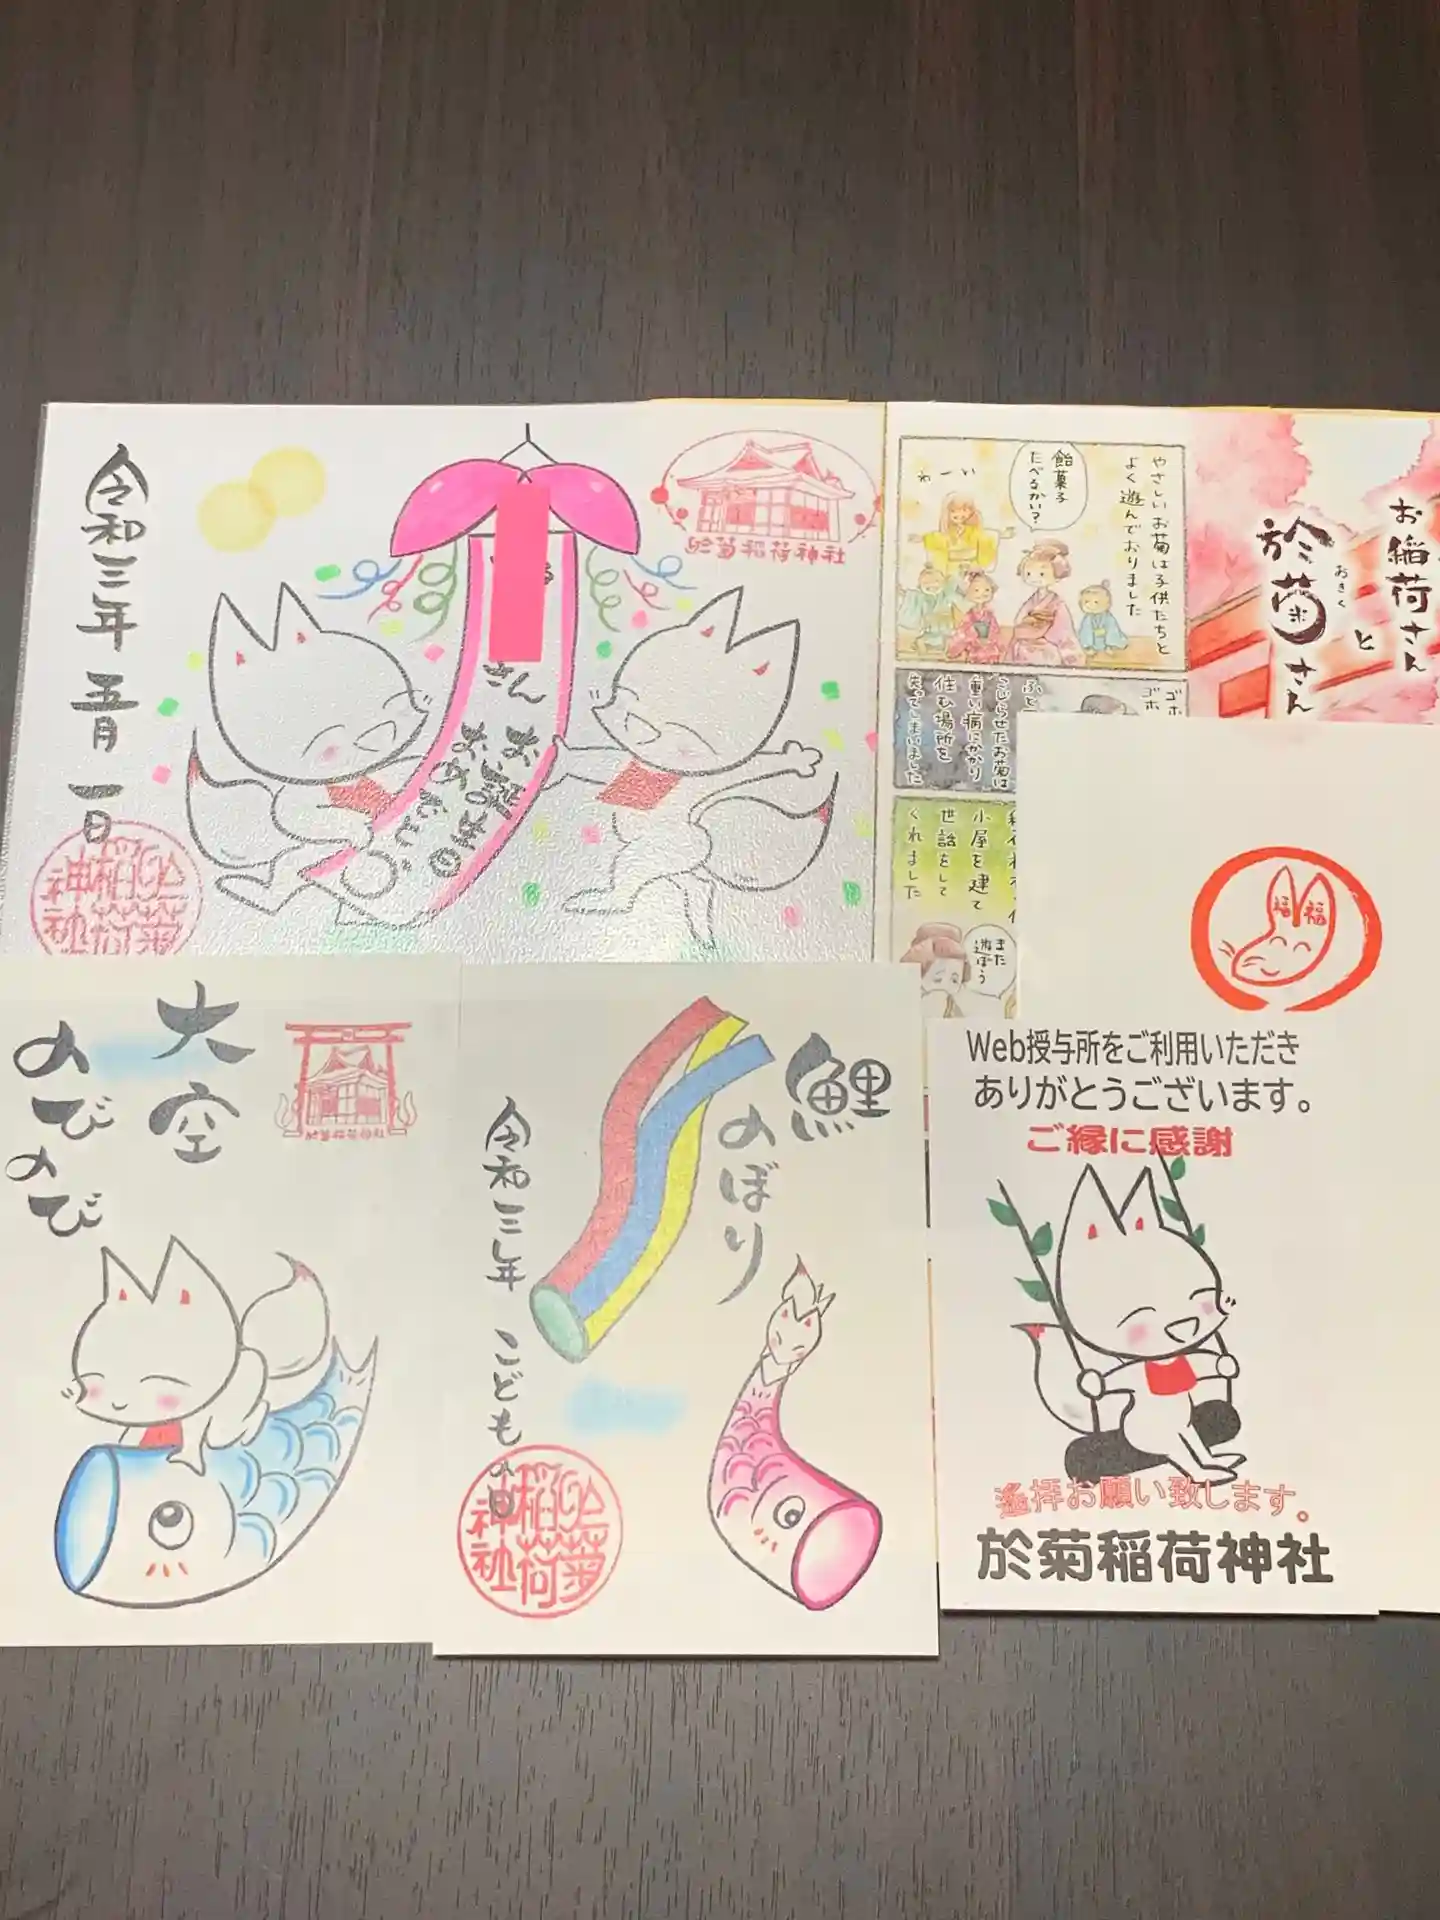 令和三年 五月 一日
さん
お誕生日
おめでとう
於菊稲荷神社
於菊
稲荷
神社
やさしいお菊は子供たちと
よく遊んでおりました
飴菓子
たべるかい?
わーい
お稲荷さん
と
於菊さん
おきく
ゴホ
ゴホ
こじらせたお菊は
重い病にかかり
住む場所を
失ってしまいました
小屋を建て
世話をして
くれました
また
遊ぼう
大空
のびのび
鯉
のぼり
令和三年 こどもの日
於菊
稲荷
神社
福 福
Web授与所をご利用いただき
ありがとうございます。
ご縁に感謝
遙拝お願い致します。
於菊稲荷神社